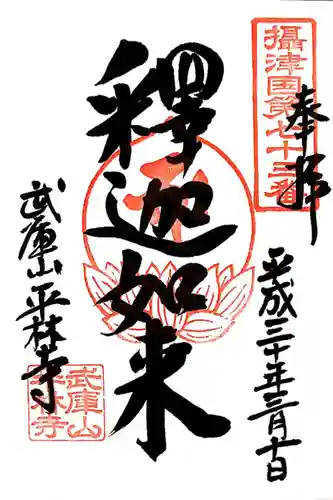 奉拝
攝津国第七十三番
平成三十年三月十日
釋迦如来
武庫山平林寺
武庫山
平林寺